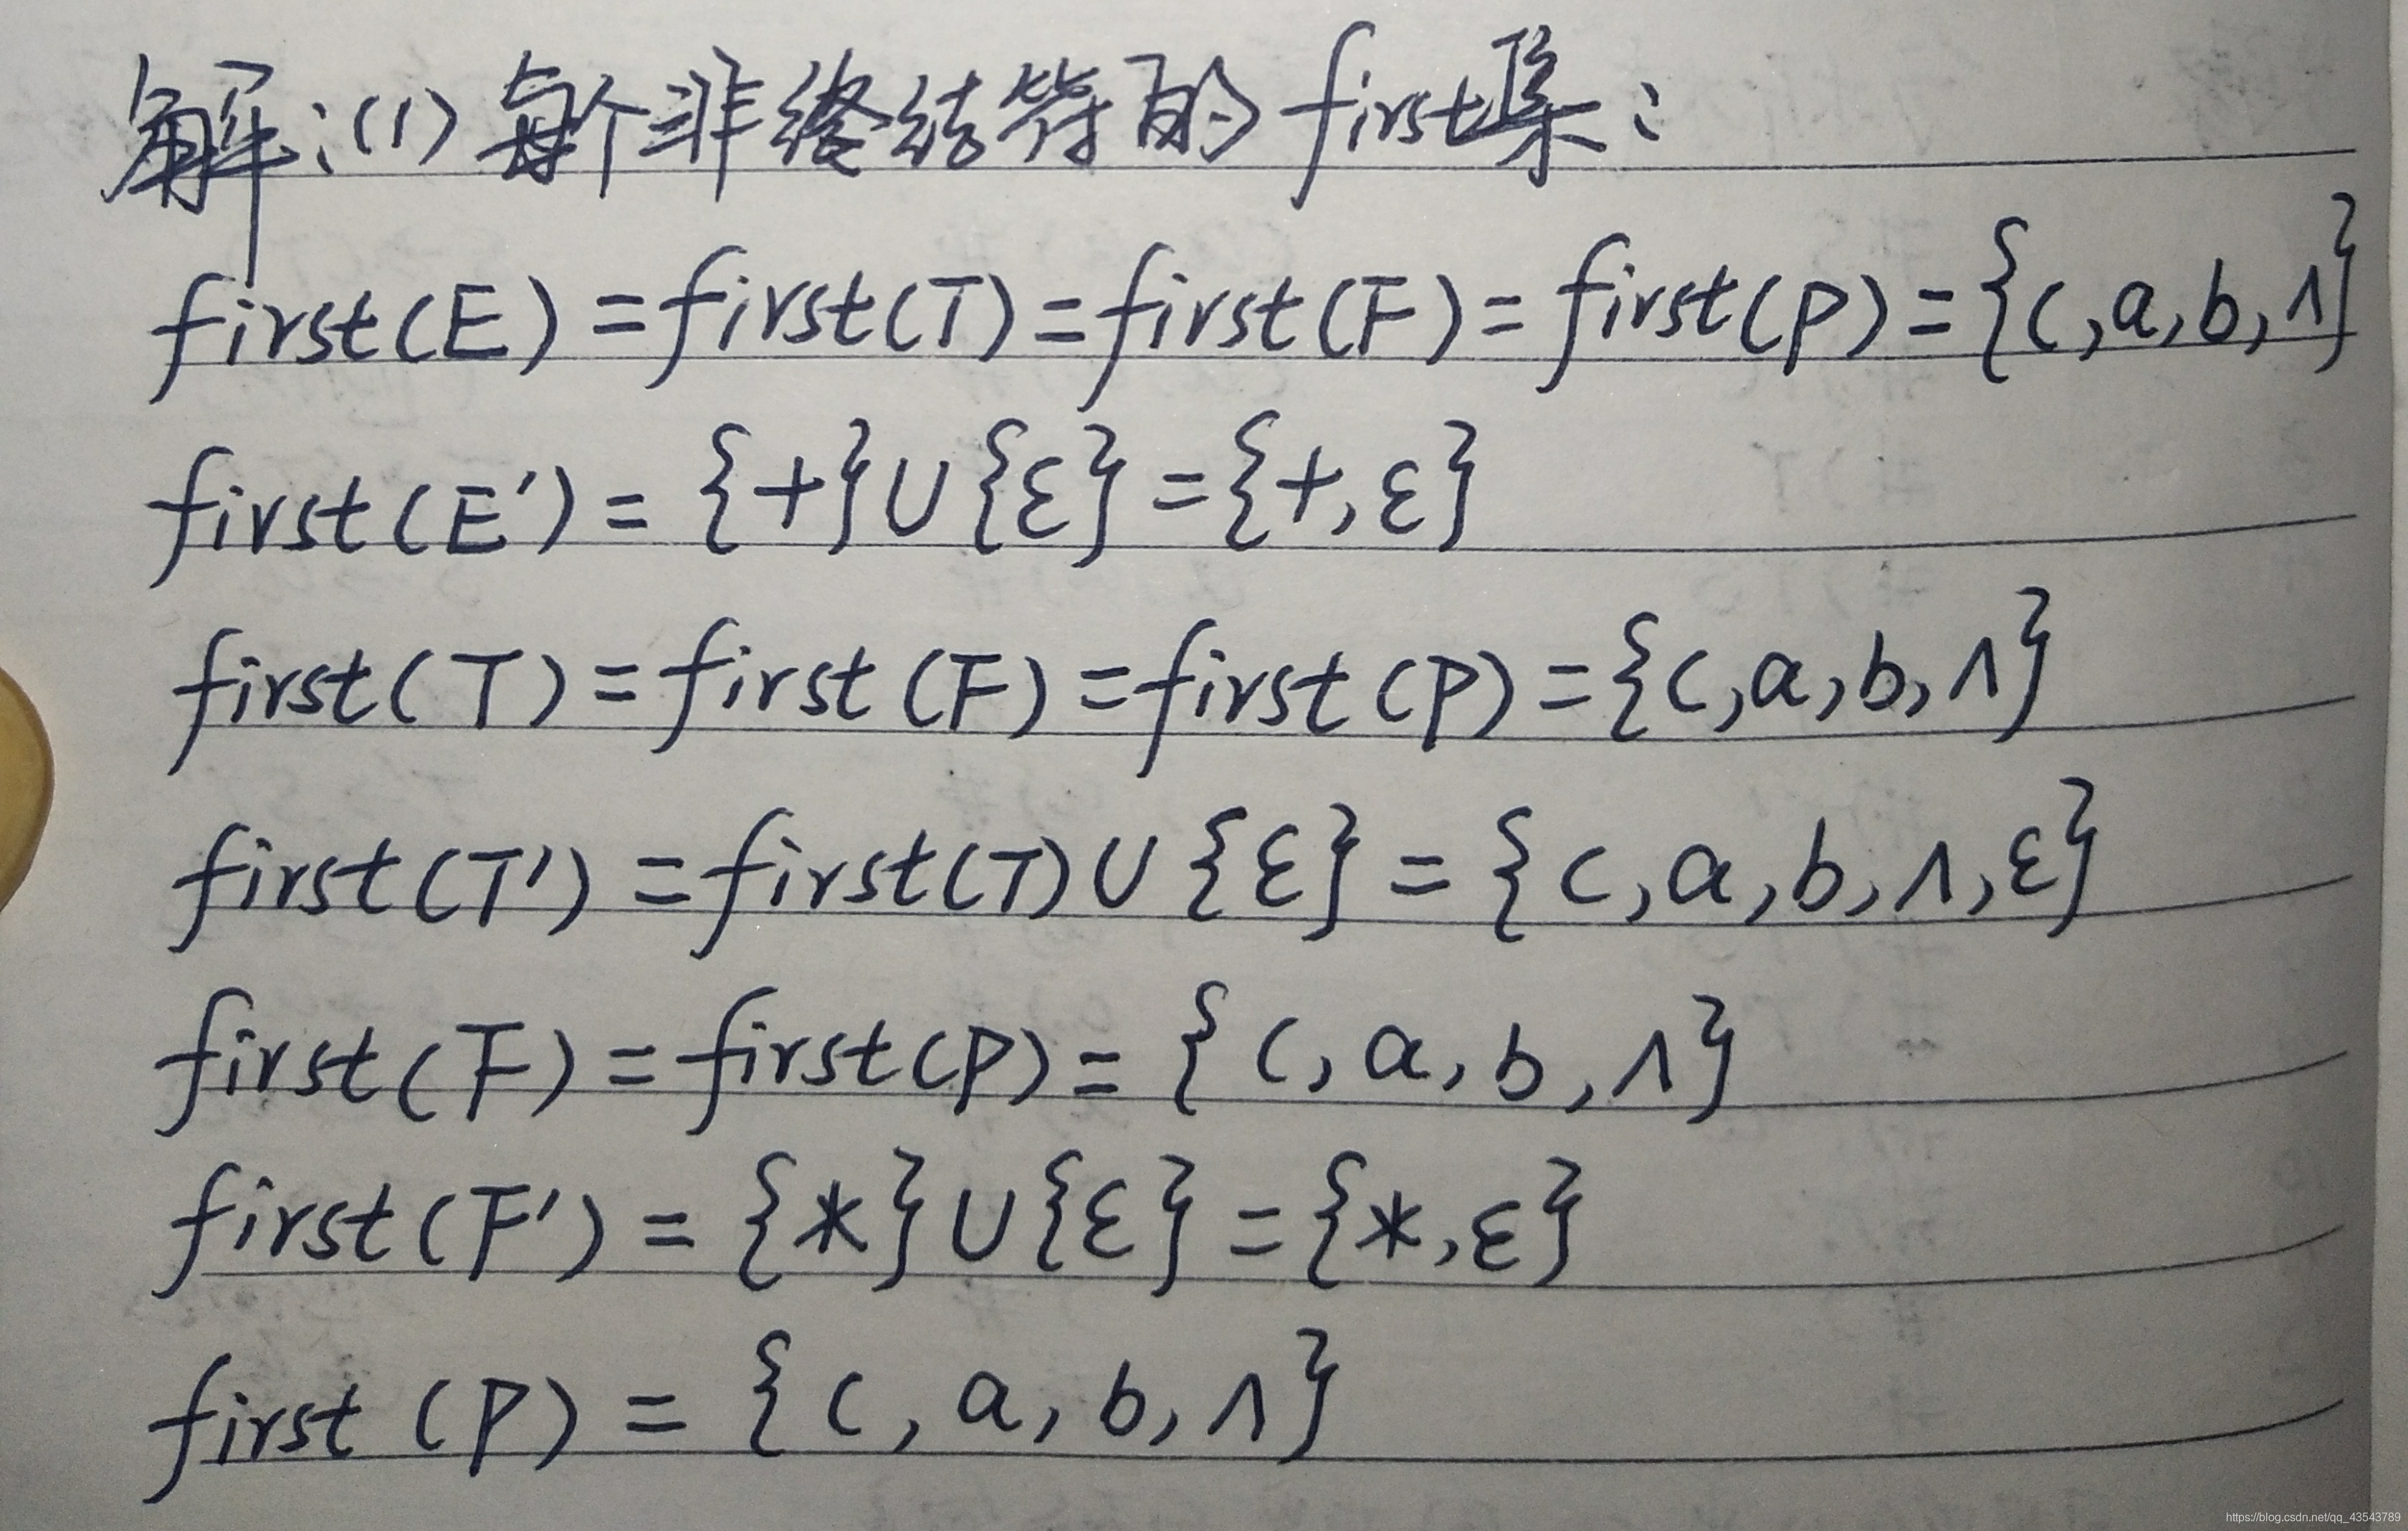 解:(1) 每个非终结符的first集:
first(E)=first(T)=first(F)=first(P)={(,a,b,∧}
first(E')={+}∪{ε}={+,ε}
first(T)=first(F)=first(P)={(,a,b,∧}
first(T')=first(T)∪{ε}={(,a,b,∧,ε}
first(F)=first(P)={(,a,b,∧}
first(F')={*}∪{ε}={*,ε}
first(P)={(,a,b,∧}
https://blog.csdn.net/qq_43543789